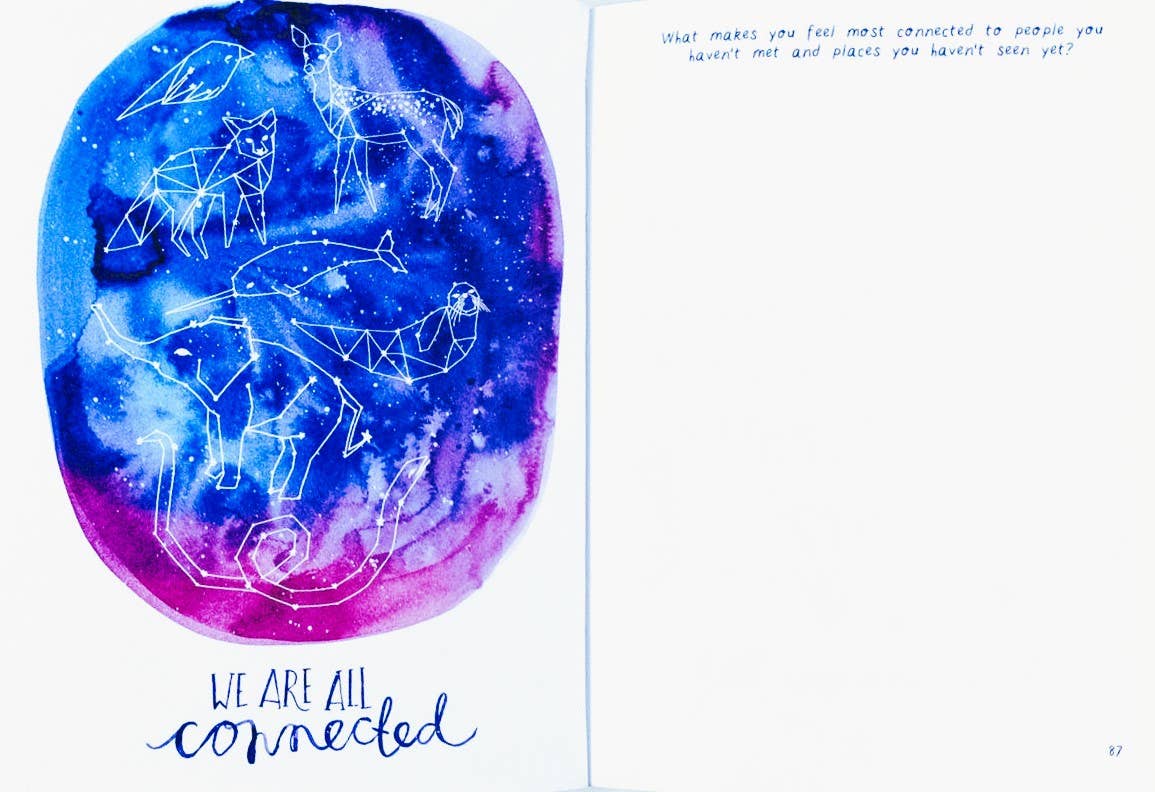 WE ARE ALL
connected
What makes you feel most connected to people you
haven't met and places you haven't seen yet?
87